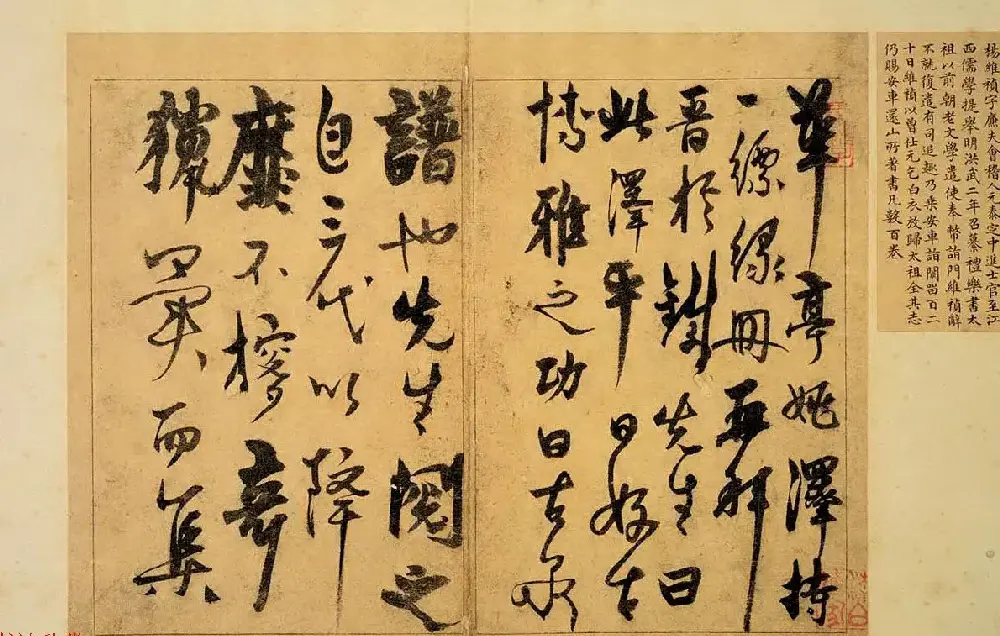 楊維禎字廉夫會稽人元泰定中進士官至江
西儒學提舉明洪武二年召纂禮樂書太
祖以前朝老文學遣使奉幣詣門維禎辭
不就復遣有司追趣乃乗安車詣闕留百二
十日維禎以曽仕元乞白衣放歸太祖全其志
仍賜安車還山所著書凡數百卷
華亭姚澤持
一縹冊再拜
晉於銕先生曰
此澤平日好古
博雅之功曰古泉
譜也先生閱之
自三代以降
靡不搜奇
獵異而集